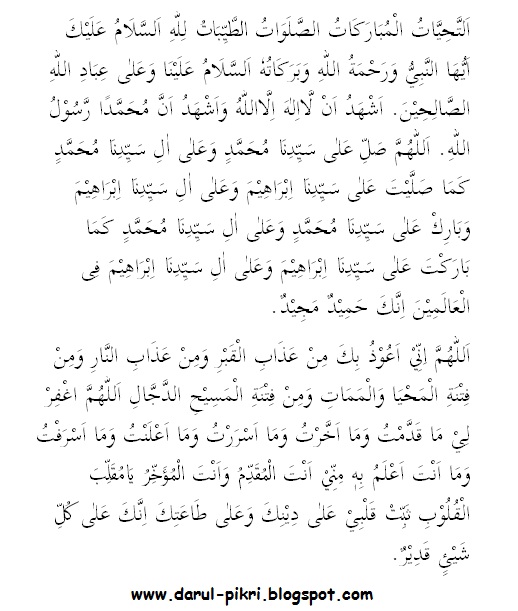 اَلتَّحِيَّاتُ الْمُبَارَكَاتُ الصَّلَوَاتُ الطَّيِّبَاتُ لِلّٰهِ اَلسَّلَامُ عَلَيْكَ
اَيُّهَا النَّبِيُّ وَرَحْمَةُ اللّٰهِ وَبَرَكَاتُهُ اَلسَّلَامُ عَلَيْنَا وَعَلٰى عِبَادِ اللّٰهِ
الصَّالِحِيْنَ. اَشْهَدُ اَنْ لَّااِلٰهَ اِلَّااللّٰهُ وَاَشْهَدُ اَنَّ مُحَمَّدًا رَّسُوْلُ
اللّٰهِ. اَللّٰهُمَّ صَلِّ عَلٰى سَيِّدِنَا مُحَمَّدٍ وَعَلٰى اٰلِ سَيِّدِنَا مُحَمَّدٍ
كَمَا صَلَّيْتَ عَلٰى سَيِّدِنَا اِبْرَاهِيْمَ وَعَلٰى اٰلِ سَيِّدِنَا اِبْرَاهِيْمَ
وَبَارِكْ عَلٰى سَيِّدِنَا مُحَمَّدٍ وَعَلٰى اٰلِ سَيِّدِنَا مُحَمَّدٍ كَمَا
بَارَكْتَ عَلٰى سَيِّدِنَا اِبْرَاهِيْمَ وَعَلٰى اٰلِ سَيِّدِنَا اِبْرَاهِيْمَ فِى
الْعَالَمِيْنَ اِنَّكَ حَمِيْدٌ مَجِيْدٌ.
اَللّٰهُمَّ اِنِّيْ اَعُوْذُ بِكَ مِنْ عَذَابِ الْقَبْرِ وَمِنْ عَذَابِ النَّارِ وَمِنْ
فِتْنَةِ الْمَحْيَا وَالْمَمَاتِ وَمِنْ فِتْنَةِ الْمَسِيْحِ الدَّجَّالِ اَللّٰهُمَّ اغْفِرْ
لِيْ مَا قَدَّمْتُ وَمَا اَخَّرْتُ وَمَا اَسْرَرْتُ وَمَا اَعْلَنْتُ وَمَا اَسْرَفْتُ
وَمَا اَنْتَ اَعْلَمُ بِهِ مِنِّيْ اَنْتَ الْمُقَدِّمُ وَاَنْتَ الْمُؤَخِّرُ يَامُقَلِّبَ
الْقُلُوْبِ ثَبِّتْ قَلْبِيْ عَلٰى دِيْنِكَ وَعَلٰى طَاعَتِكَ اِنَّكَ عَلٰى كُلِّ
شَيْئٍ قَدِيْرٌ.
www.darul-pikri.blogspot.com